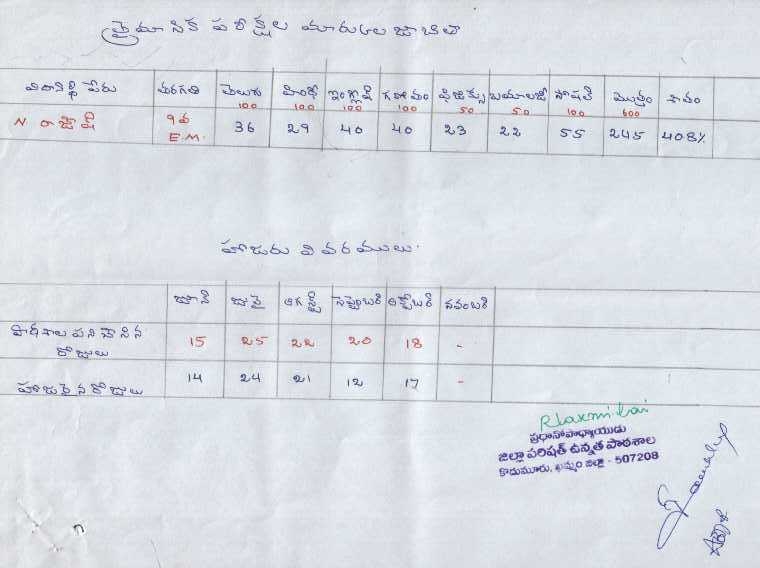 త్రైమాసిక పరీక్షల మార్కుల జాబితా
విద్యార్థి పేరు తరగతి తెలుగు హిందీ ఇంగ్లీషు గణితం ఫిజిక్స్ బయాలజీ సోషల్ మొత్తం శాతం
100 100 100 100 50 50 100 600
N రాజేష్ 9వ 36 29 40 40 23 22 55 245 40.8%
E.M.
హాజరు వివరములు.
జూన్ జులై ఆగస్ట్ సెప్టెంబర్ అక్టోబర్ నవంబర్
పాఠశాల పనిచేసిన 15 25 22 20 18 -
రోజులు
హాజరైన రోజులు 14 24 21 12 17 -
ప్రధానోపాధ్యాయుడు
జిల్లా పరిషత్ ఉన్నత పాఠశాల
కాదుమూరు, ఖమ్మం జిల్లా - 507208